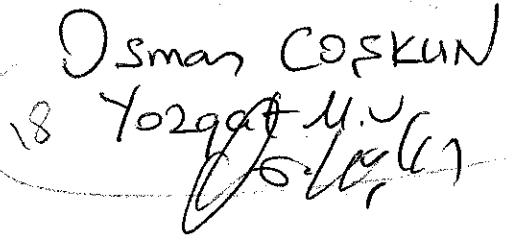 Osman COŞKUN
18 Yozgat M.V